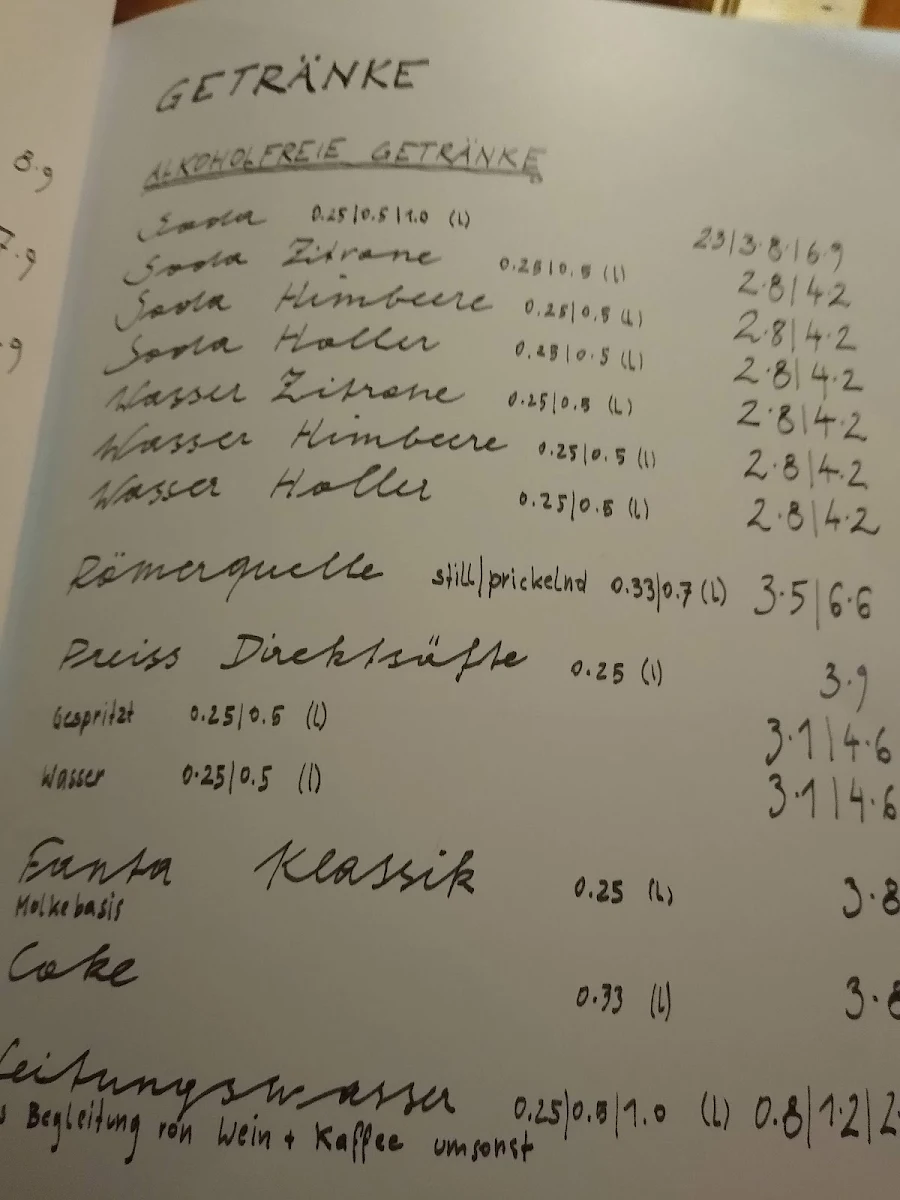 8.9
7.9
.9
GETRÄNKE
ALKOHOLFREIE GETRÄNKE
Soda 0.25|0.5|1.0 (l) 23|3.8|6.9
Soda Zitrone 0.25|0.5 (l) 2.8|4.2
Soda Himbeere 0.25|0.5 (l) 2.8|4.2
Soda Holler 0.25|0.5 (l) 2.8|4.2
Wasser Zitrone 0.25|0.5 (l) 2.8|4.2
Wasser Himbeere 0.25|0.5 (l) 2.8|4.2
Wasser Holler 0.25|0.5 (l) 2.8|4.2
Römerquelle still/prickelnd 0.33|0.7 (l) 3.5|6.6
Preiss Direktsäfte 0.25 (l) 3.9
Gespritzt 0.25|0.5 (l) 3.1|4.6
Wasser 0.25|0.5 (l) 3.1|4.6
Fanta Klassik 0.25 (l) 3.8
Molkebasis
Coke 0.33 (l) 3.8
Leitungswasser 0.25|0.5|1.0 (l) 0.8|1.2|2.
s Begleitung von Wein + Kaffee umsonst